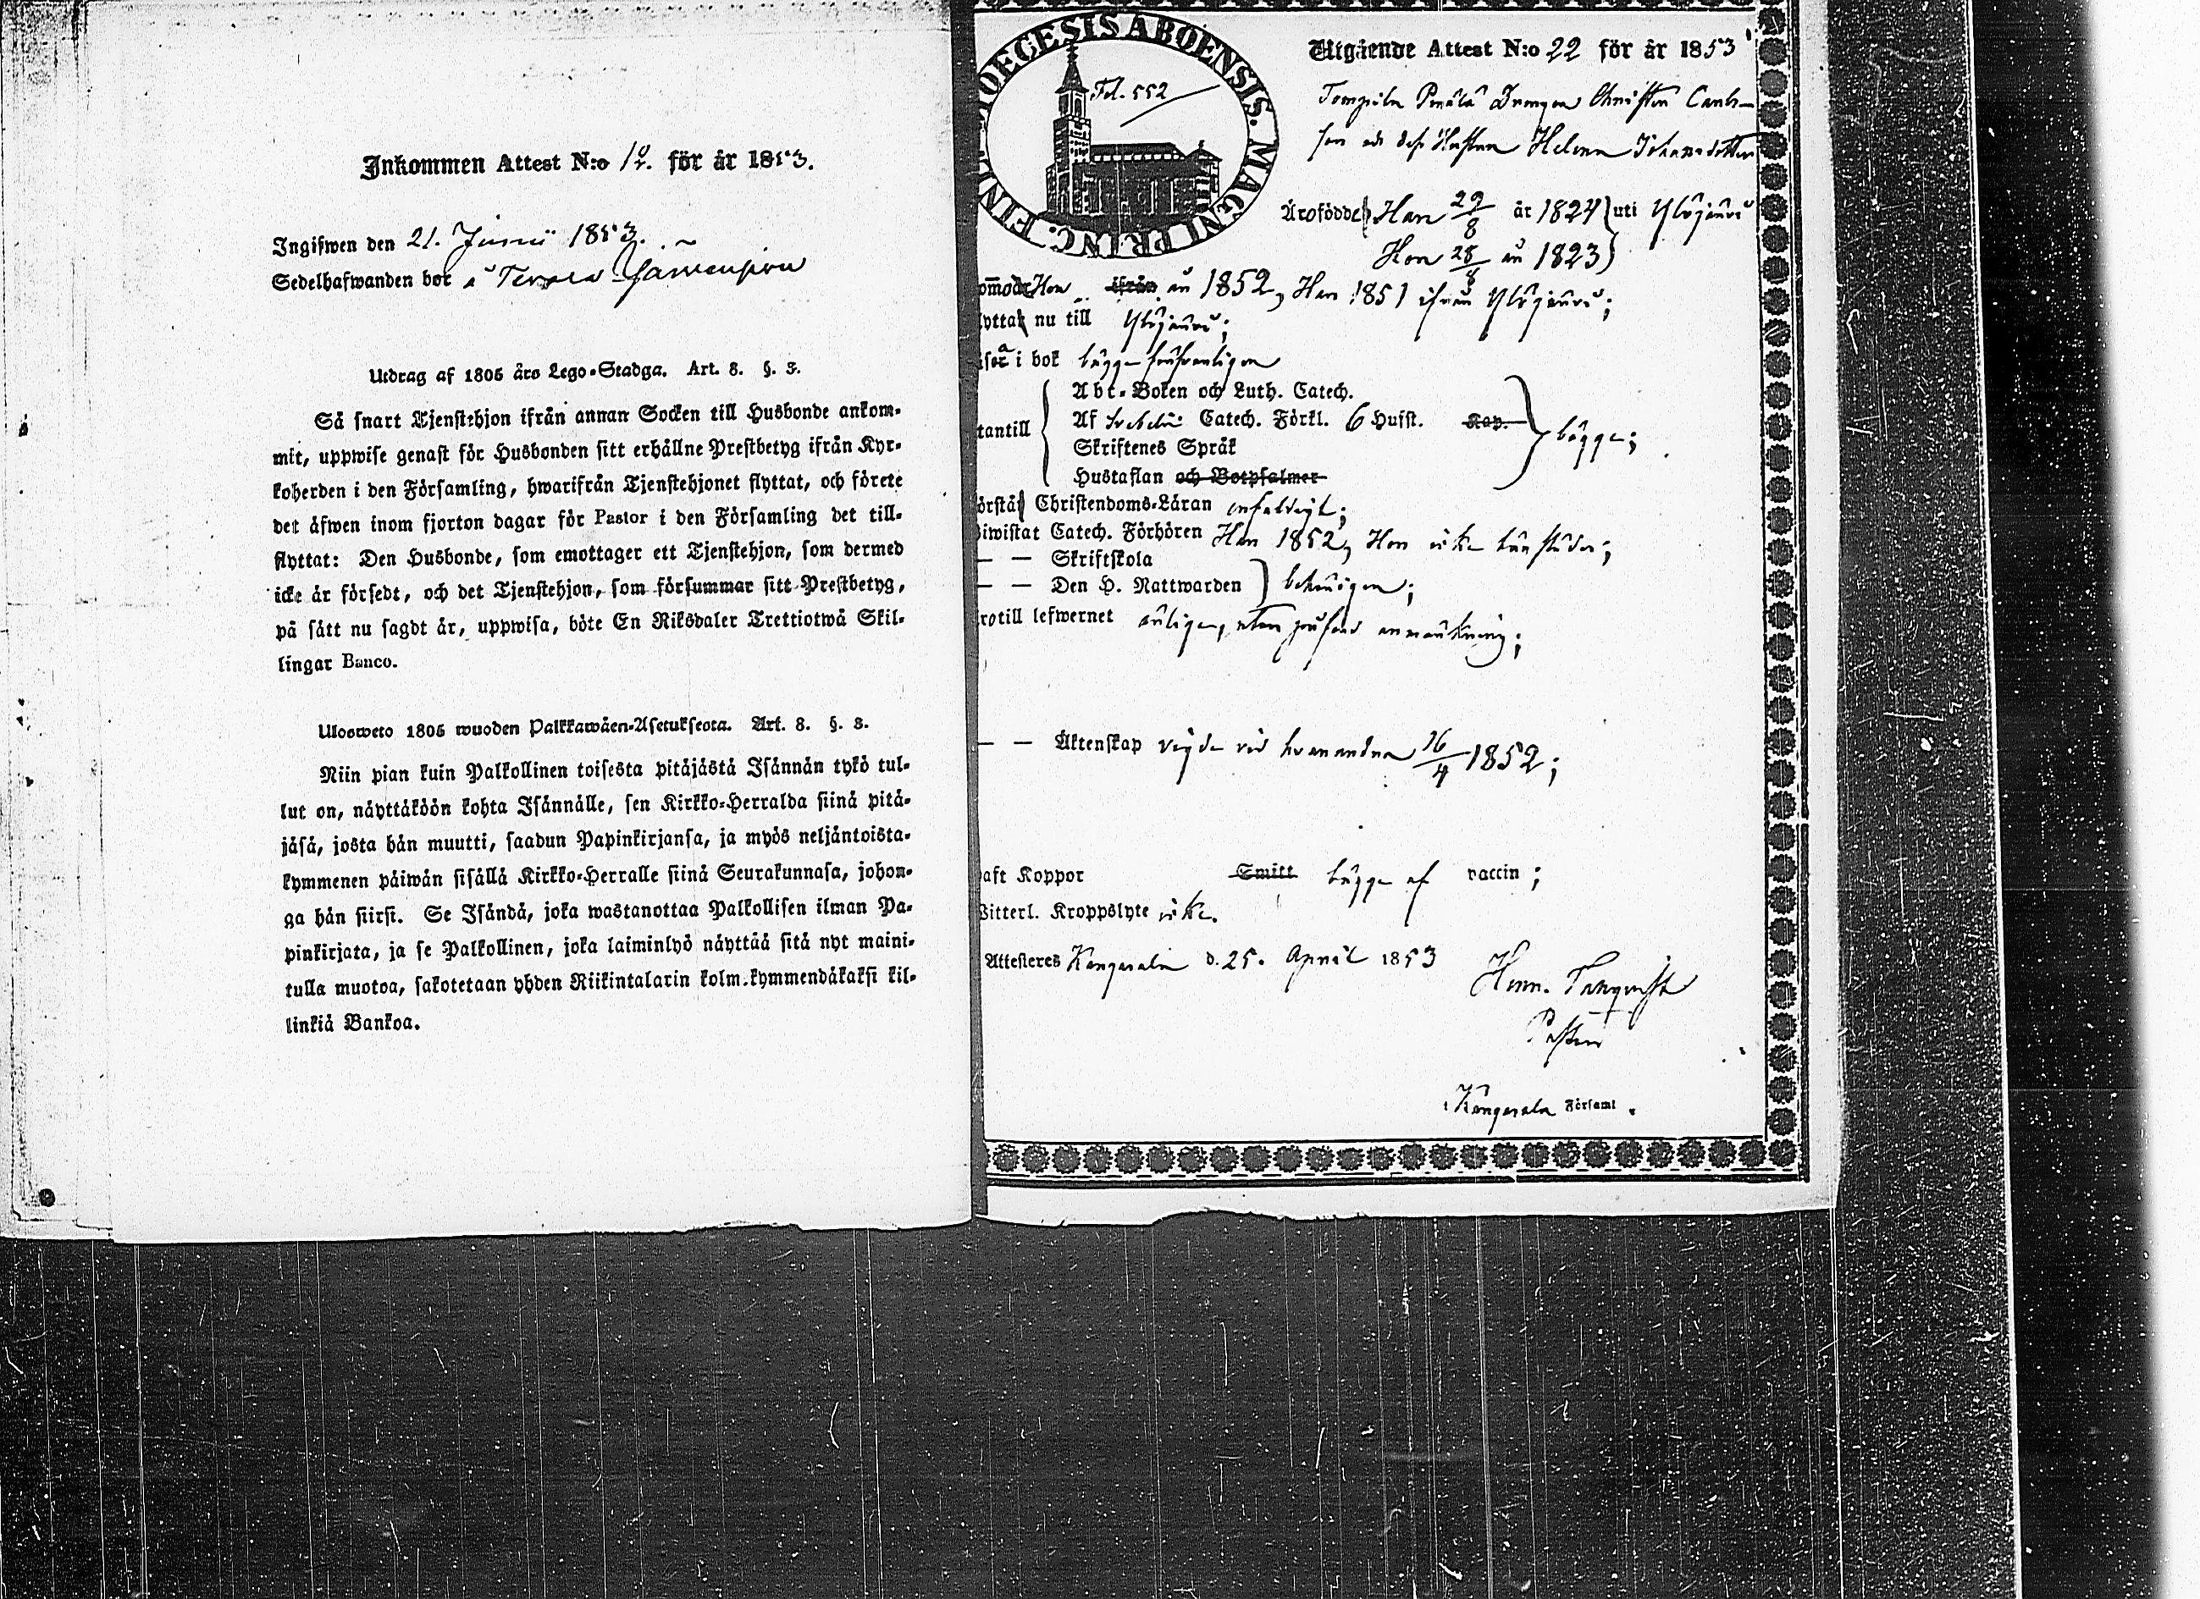 Inkommen Attest N:o för år 1853.
Ingifwen den 21. Junii 1853.
Sedelhafwanden bor å
Utdrag af 1805 års Lego-Stadga. Art. 8. §. 3.
Så snart Tjenstehjon ifrån annan Socken till Husbonde ankom-
mit, uppwise genast för Husbonden sitt erhållne Prestbetyg ifrån Kyr-
koherden i den Församling, hwarifrån Tjenstehjonet flyttat, och förete
det äfwen inom fjorton dagar för Pastor i den Församling det till-
flyttat: Den Husbonde, som emottager ett Tjenstehjon, som dermed
icke är försedt, och det Tjenstehjon, som försummar sitt Prestbetyg,
på sätt nu sagdt är, uppwisa, böte En Riksdaler Trettiotwå Skil-
lingar Banco.
Ulosweto 1805 wuoden Palkkawäen-Asetuksesta. Art. 8. §. 3.
Niin pian kuin Palkollinen toisesta pitäjästä Isännän tykö tul-
lut on, näyttäköön kohta Isännälle, sen Kirkko-Herralda siinä pitä-
jäsä, josta hän muutti, saadun Papinkirjansa, ja myös neljäntoista-
kymmenen päiwän sisällä Kirkko-Herralle siinä Seurakunnasa, johon-
ga hän siirsi. Se Isändä, joka wastanottaa Palkollisen ilman Pa-
pinkirjata, ja se Palkollinen, joka laiminlyö näyttää sitä nyt maini-
tulla muotoa, sakotetaan yhden Riikintalarin kolm.kymmendäkaksi kil-
linkiä Bankoa.
DIOECESIS ABOENSIS. MAGNI PRINC. FINL.
Fol. 552
Utgående Attest N:o 22 för år 1853
Drengen Christer Carls-
son och dess Hustru Helena Johansdotter
Äro födde Han 29/8 år 1824 uti Ylöjärvi
Hon 28/8 år 1823
Hon ifrån år 1852, Han 1851 ifrån Ylöjärvi;
nu till Ylöjärvi;
i bok bägge
Abc-Boken och Luth. Catech.
Af Catech. Förkl. 6 Hufst. Kap. bägge;
Skriftenes Språk
Hustaflan och Botpsalmer
Christendoms-Läran enfaldigt;
Catech. Förhören Han 1852, Hon icke härstädes;
— — Skriftskola
— — Den H. Nattwarden behörigen;
till lefwernet ärliga, utan anmärkning;
— — Äktenskap vigde vid hvarandra 16/4 1852;
Koppor Smitt bägge af vaccin;
Witterl. Kroppslyte icke.
Attesteres Kangasala d. 25. April 1853
Pastor
i Kangasala Församl.